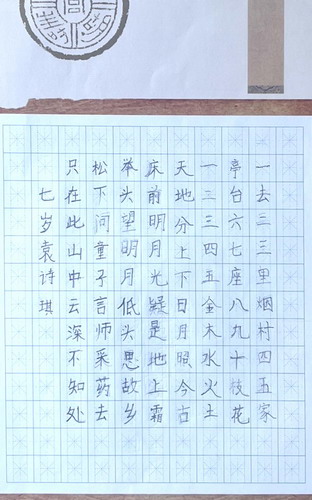 一去二三里烟村四五家
亭台六七座八九十枝花
一二三四五金木水火土
天地分上下日月照今古
床前明月光疑是地上霜
举头望明月低头思故乡
松下问童子言师采药去
只在此山中云深不知处
七岁袁诗琪